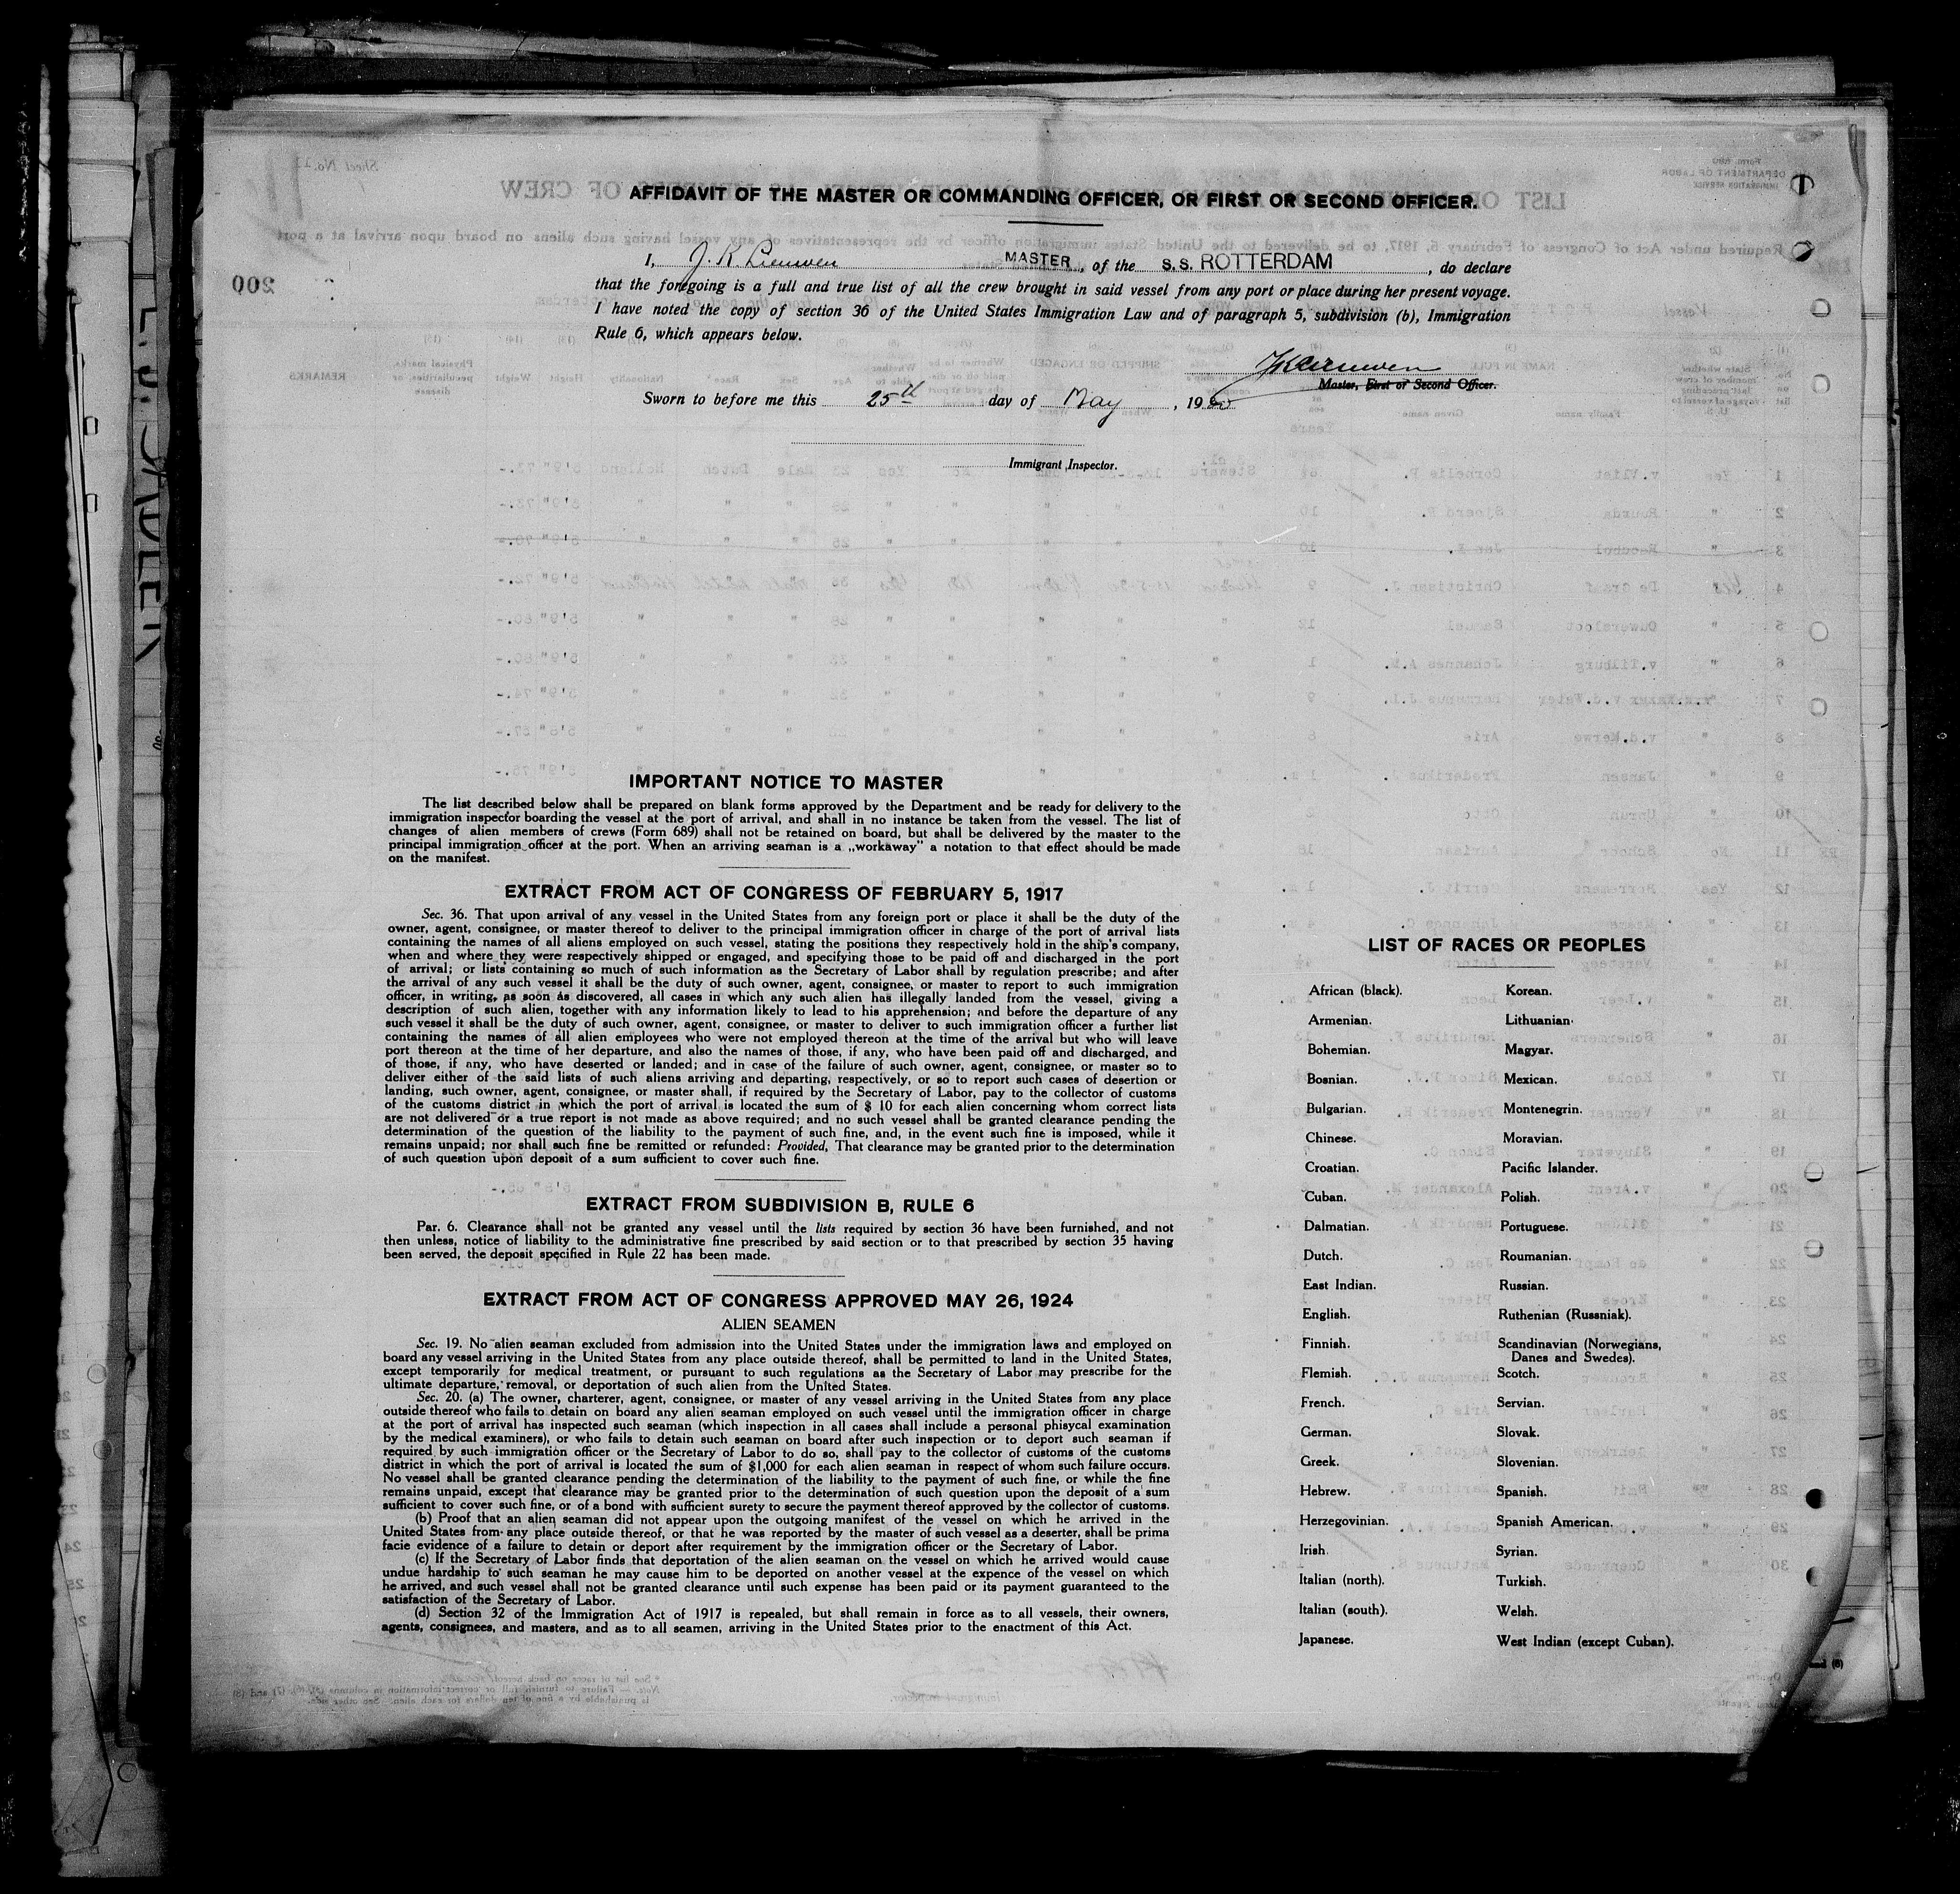 AFFIDAVIT OF THE MASTER OR COMMANDING OFFICER, OR FIRST OR SECOND OFFICER.
I, J. K. Lieuwen MASTER, of the S.S. ROTTERDAM, do declare
that the foregoing is a full and true list of all the crew brought in said vessel from any port or place during her present voyage.
I have noted the copy of section 36 of the United States Immigration Law and of paragraph 5, subdivision (b), Immigration
Rule 6, which appears below.
JKLieuwen
Master, First or Second Officer.
Sworn to before me this 25th day of May, 1930
Immigrant Inspector.
IMPORTANT NOTICE TO MASTER
The list described below shall be prepared on blank forms approved by the Department and be ready for delivery to the
immigration inspector boarding the vessel at the port of arrival, and shall in no instance be taken from the vessel. The list of
changes of alien members of crews (Form 689) shall not be retained on board, but shall be delivered by the master to the
principal immigration officer at the port. When an arriving seaman is a „workaway" a notation to that effect should be made
on the manifest.
EXTRACT FROM ACT OF CONGRESS OF FEBRUARY 5, 1917
Sec. 36. That upon arrival of any vessel in the United States from any foreign port or place it shall be the duty of the
owner, agent, consignee, or master thereof to deliver to the principal immigration officer in charge of the port of arrival lists
containing the names of all aliens employed on such vessel, stating the positions they respectively hold in the ship's company,
when and where they were respectively shipped or engaged, and specifying those to be paid off and discharged in the port
of arrival; or lists containing so much of such information as the Secretary of Labor shall by regulation prescribe; and after
the arrival of any such vessel it shall be the duty of such owner, agent, consignee, or master to report to such immigration
officer, in writing, as soon as discovered, all cases in which any such alien has illegally landed from the vessel, giving a
description of such alien, together with any information likely to lead to his apprehension; and before the departure of any
such vessel it shall be the duty of such owner, agent, consignee, or master to deliver to such immigration officer a further list
containing the names of all alien employees who were not employed thereon at the time of the arrival but who will leave
port thereon at the time of her departure, and also the names of those, if any, who have been paid off and discharged, and
of those, if any, who have deserted or landed; and in case of the failure of such owner, agent, consignee, or master so to
deliver either of the said lists of such aliens arriving and departing, respectively, or so to report such cases of desertion or
landing, such owner, agent, consignee, or master shall, if required by the Secretary of Labor, pay to the collector of customs
of the customs district in which the port of arrival is located the sum of $ 10 for each alien concerning whom correct lists
are not delivered or a true report is not made as above required; and no such vessel shall be granted clearance pending the
determination of the question of the liability to the payment of such fine, and, in the event such fine is imposed, while it
remains unpaid; nor shall such fine be remitted or refunded: Provided, That clearance may be granted prior to the determination
of such question upon deposit of a sum sufficient to cover such fine.
EXTRACT FROM SUBDIVISION B, RULE 6
Par. 6. Clearance shall not be granted any vessel until the lists required by section 36 have been furnished, and not
then unless, notice of liability to the administrative fine prescribed by said section or to that prescribed by section 35 having
been served, the deposit specified in Rule 22 has been made.
EXTRACT FROM ACT OF CONGRESS APPROVED MAY 26, 1924
ALIEN SEAMEN
Sec. 19. No alien seaman excluded from admission into the United States under the immigration laws and employed on
board any vessel arriving in the United States from any place outside thereof, shall be permitted to land in the United States,
except temporarily for medical treatment, or pursuant to such regulations as the Secretary of Labor may prescribe for the
ultimate departure, removal, or deportation of such alien from the United States.
Sec. 20. (a) The owner, charterer, agent, consignee, or master of any vessel arriving in the United States from any place
outside thereof who fails to detain on board any alien seaman employed on such vessel until the immigration officer in charge
at the port of arrival has inspected such seaman (which inspection in all cases shall include a personal phisycal examination
by the medical examiners), or who fails to detain such seaman on board after such inspection or to deport such seaman if
required by such immigration officer or the Secretary of Labor to do so, shall pay to the collector of customs of the customs
district in which the port of arrival is located the sum of $1,000 for each alien seaman in respect of whom such failure occurs.
No vessel shall be granted clearance pending the determination of the liability to the payment of such fine, or while the fine
remains unpaid, except that clearance may be granted prior to the determination of such question upon the deposit of a sum
sufficient to cover such fine, or of a bond with sufficient surety to secure the payment thereof approved by the collector of customs.
(b) Proof that an alien seaman did not appear upon the outgoing manifest of the vessel on which he arrived in the
United States from any place outside thereof, or that he was reported by the master of such vessel as a deserter, shall be prima
facie evidence of a failure to detain or deport after requirement by the immigration officer or the Secretary of Labor.
(c) If the Secretary of Labor finds that deportation of the alien seaman on the vessel on which he arrived would cause
undue hardship to such seaman he may cause him to be deported on another vessel at the expence of the vessel on which
he arrived, and such vessel shall not be granted clearance until such expense has been paid or its payment guaranteed to the
satisfaction of the Secretary of Labor.
(d) Section 32 of the Immigration Act of 1917 is repealed, but shall remain in force as to all vessels, their owners,
agents, consignees, and masters, and as to all seamen, arriving in the United States prior to the enactment of this Act.
LIST OF RACES OR PEOPLES
African (black). Korean.
Armenian. Lithuanian.
Bohemian. Magyar.
Bosnian. Mexican.
Bulgarian. Montenegrin.
Chinese. Moravian.
Croatian. Pacific Islander.
Cuban. Polish.
Dalmatian. Portuguese.
Dutch. Roumanian.
East Indian. Russian.
English. Ruthenian (Russniak).
Finnish. Scandinavian (Norwegians,
Danes and Swedes).
Flemish. Scotch.
French. Servian.
German. Slovak.
Greek. Slovenian.
Hebrew. Spanish.
Herzegovinian. Spanish American.
Irish. Syrian.
Italian (north). Turkish.
Italian (south). Welsh.
Japanese. West Indian (except Cuban).